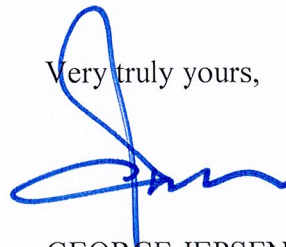 Very truly yours,
GEORGE JEPSEN